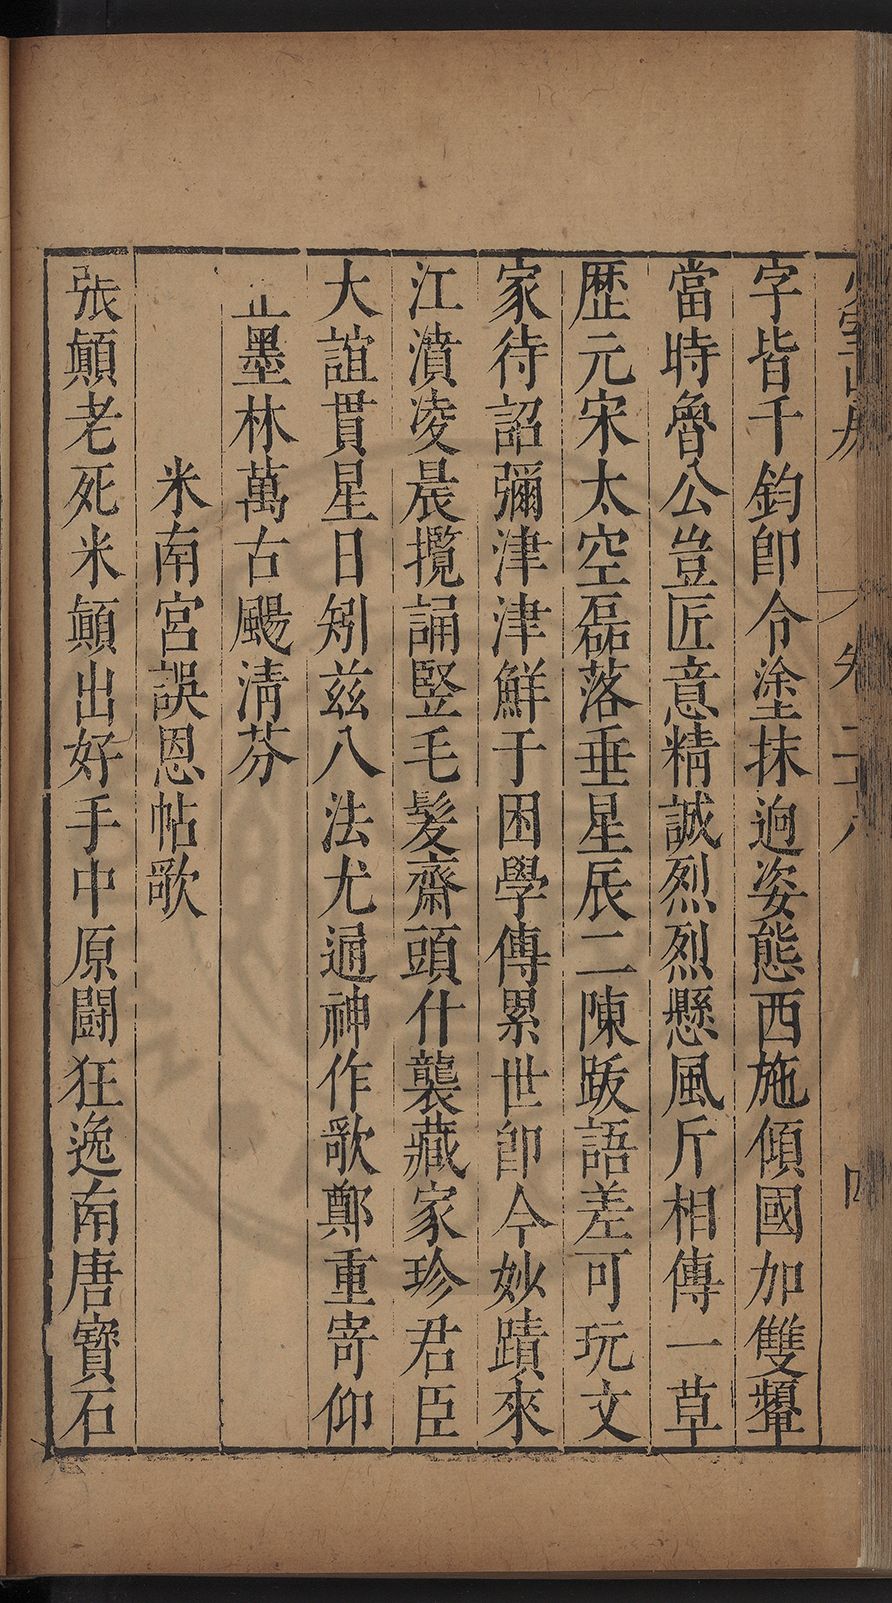 字皆千鈞卽令塗抹逈姿態西施傾國加雙顰
當時魯公豈匠意精誠烈烈懸風斤相傳一草
歷元宋太空磊落垂星辰二陳䟦語差可玩文
家待詔彌津津鮮于困學傳累世卽今妙蹟來
江濆凌晨攬誦豎毛髮齋頭什襲藏家珍君臣
大誼貫星日矧兹八法尤通神作歌鄭重寄仰
止墨林萬古颺清芬
米南宮誤恩帖歌
張顛老死米顛出好手中原闘狂逸南唐寶石